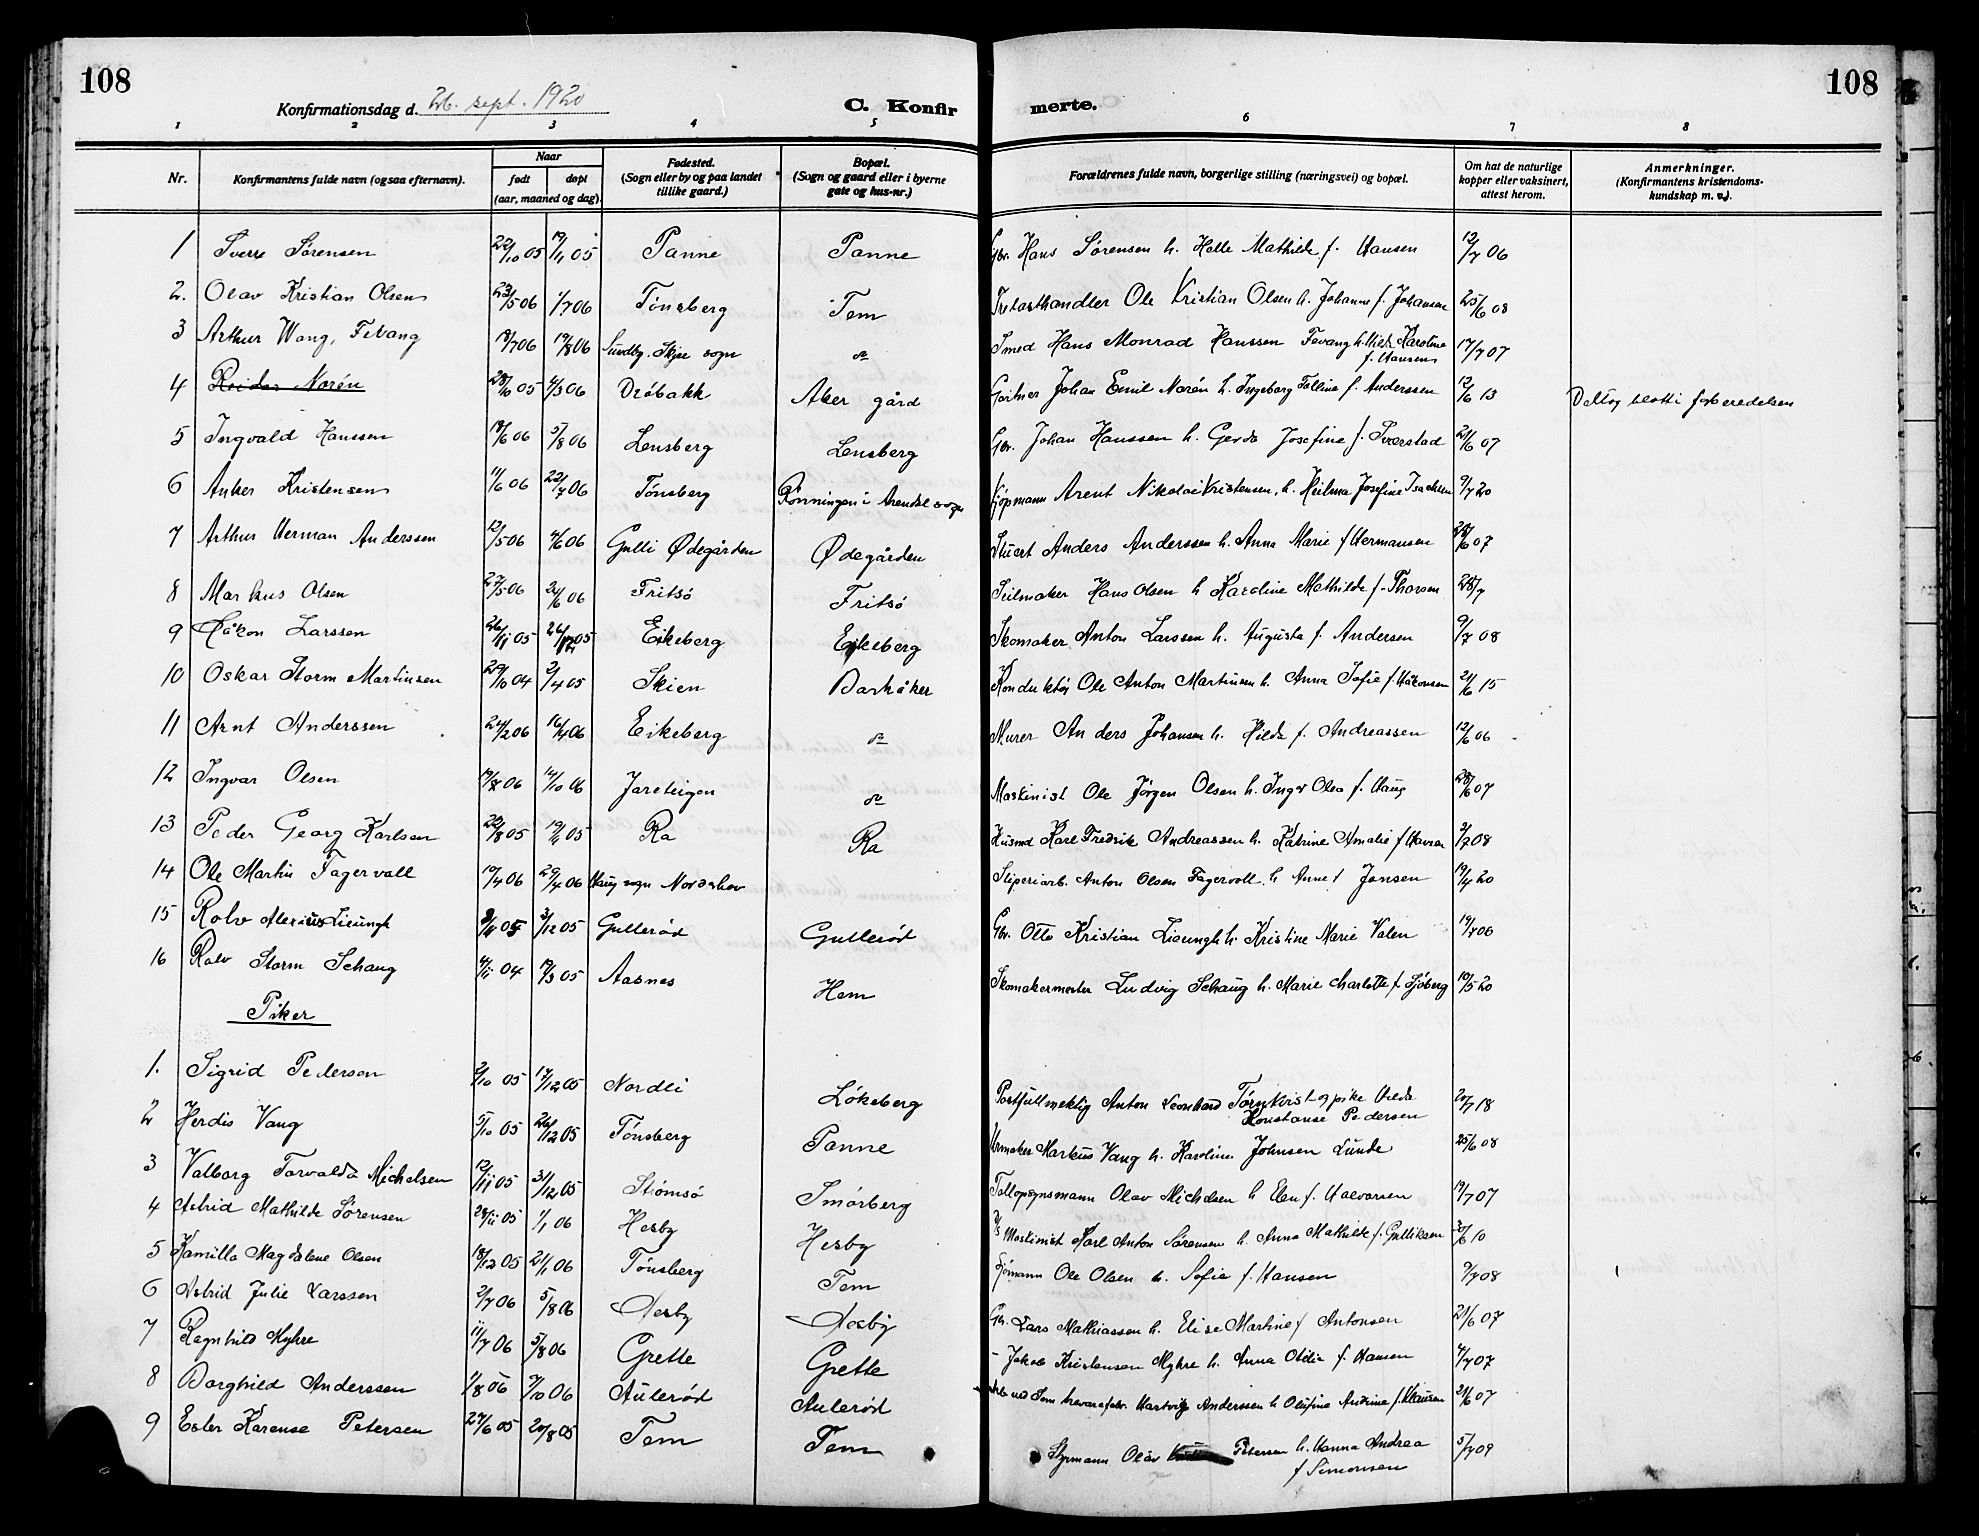 108
Konfirmationsdag d. 26. sept. 1920
C. Konfir
merte.
108
1 2 3 4 5 6 7 8
Nr. Konfirmantens fulde navn (ogsaa efternavn). Naar født døpt (aar, maaned og dag). Fødested. (Sogn eller by og paa landet tillike gaard.) Bopæl. (Sogn og gaard eller i byerne gate og hus-nr.) Forældrenes fulde navn, borgerlige stilling (næringsvei) og bopæl. Om hat de naturlige kopper eller vaksinert, attest herom. Anmerkninger. (Konfirmantens kristendoms-kundskap m. v.).
1 Sverre Sørensen 22/10 05 19/11 05 Panne Panne Gbr. Hans Sørensen h. Helle Mathilde f. Hansen 12/7 06
2. Olav Kristian Olsen 23/5 06 1/7 06 Tønsberg Tem Trelasthandler Ole Kristian Olsen h. Johanne f. Johansen 25/6 08
3 Arthur Wang, Fevang 18/7 06 19/8 06 Sundby, Skjee sogn do Smed Hans Monrad Hanssen Fevang h. Hilda Karoline f. Hansen 17/7 07
4 Reidar Norén 28/10 05 4/3 06 Drøbakk Aker gård Gartner Johan Emil Norén h. Ingeborg Talline f. Anderssen 12/6 13 Deltog blott i forberedelsen
5 Ingvald Hanssen 18/6 06 5/8 06 Lensberg Lensberg Gbr. Johan Hanssen h. Gerda Josefine f. Sverstad 21/6 07
6 Anker Kristensen 11/6 06 22/7 06 Tønsberg Rønningen i Arendal sogn Kjøpmann Arent Nikolai Kristensen, h. Heilma Josefine Isachsen 9/7 20
7 Arthur Herman Anderssen 12/5 06 4/6 06 Gulli Ødegården Ødegården Stuert Anders Anderssen h. Anna Marie f Hermansen 28/6 07
8 Markus Olsen 27/5 06 24/6 06 Fritsø Fritsø Seilmaker Hans Olsen h Karoline Mathilde f. Thorsen 25/7
9 Håkon Larssen 26/11 05 26/12 05 Eikeberg Eikeberg Skomaker Anton Larssen h. Augusta f. Andersen 9/7 08
10 Oskar Storm Martinsen 29/10 04 2/4 05 Skien Barkåker Konduktør Ole Anton Martinsen h. Anna Sofie f Håkonsen 21/6 15
11 Arnt Anderssen 24/2 06 16/4 06 Eikeberg do Murer Anders Johansen h. Hilda f. Andreassen 12/6 06
12 Ingvar Olsen 19/8 06 14/10 06 Jareteigen do Maskinist Ole Jørgen Olsen h. Inger Olea f. Haug 28/6 07
13 Peder Georg Karlsen 22/8 05 19/11 05 Ra Ra Husmd Karl Fredrik Andreassen h. Katrine Amalie f Hansen 3/7 08
14 Ole Martin Fagervoll 10/4 06 29/4 06 Haug sogn Norderhov Sliperiarb. Anton Olsen Fagervoll h Anne f Jansen 19/4 20
15 Rolv Alerius Lieungh 9/11 05 3/12 05 Gullerød Gullerød Gbr. Otto Kristian Lieungh h. Kristine Marie Valen 19/7 06
16 Rolv Storm Schaug 4/11 04 19/3 05 Aasnes Hem Skomakermester Ludvig Schaug h. Marie Charlotte f Sjøberg 10/5 20
Piker
1. Sigrid Pedersen 2/10 05 17/12 05 Nordli Løkeberg Postfullmektig Anton Leonhard Tørnkvist og pike Hilda Konstanse Pedersen 20/7 18
2 Herdis Vang 5/10 05 26/12 05 Tønsberg Panne Urmaker Markus Vang h. Karoline Johnsen Lunde 25/6 08
3 Valborg Torvalda Michelsen 12/11 05 31/12 05 Strømsø Smørberg Tollopsynsmann Olav Michelsen h Elen f. Halvorsen 19/7 07
4 Astrid Mathilde Sørensen 28/11 05 1/1 06 Hesby Hesby D/s Maskinist Karl Anton Sørensen h. Anna Mathilde f. Gulliksen 30/6 10
5 Kamilla Magdalene Olsen 18/12 05 21/1 06 Tønsberg Tem Sjømann Ole Olsen h. Sofie f. Hansen 9/7 08
6 Astrid Julie Larssen 2/7 06 5/8 06 Hesby Hesby Gbr. Lars Mathiassen h. Elise Martine f Antonsen 21/6 07
7 Ragnhild Myhre 11/7 06 5/8 06 Grette Grette - Jakob Kristensen Myhre h. Anna Otilie f. Hansen 4/7 07
8 Borghild Anderssen 1/8 06 7/10 06 Aulerød Aulerød Arb. ved Tem trevarefabr. Hartvig Anderssen h Olufine Andrine f. Klausen 21/6 07
9 Ester Karense Petersen 27/6 05 20/8 05 Tem Tem Styrmann Olav Petersen h. Hanna Andrea f Simonsen 5/7 09